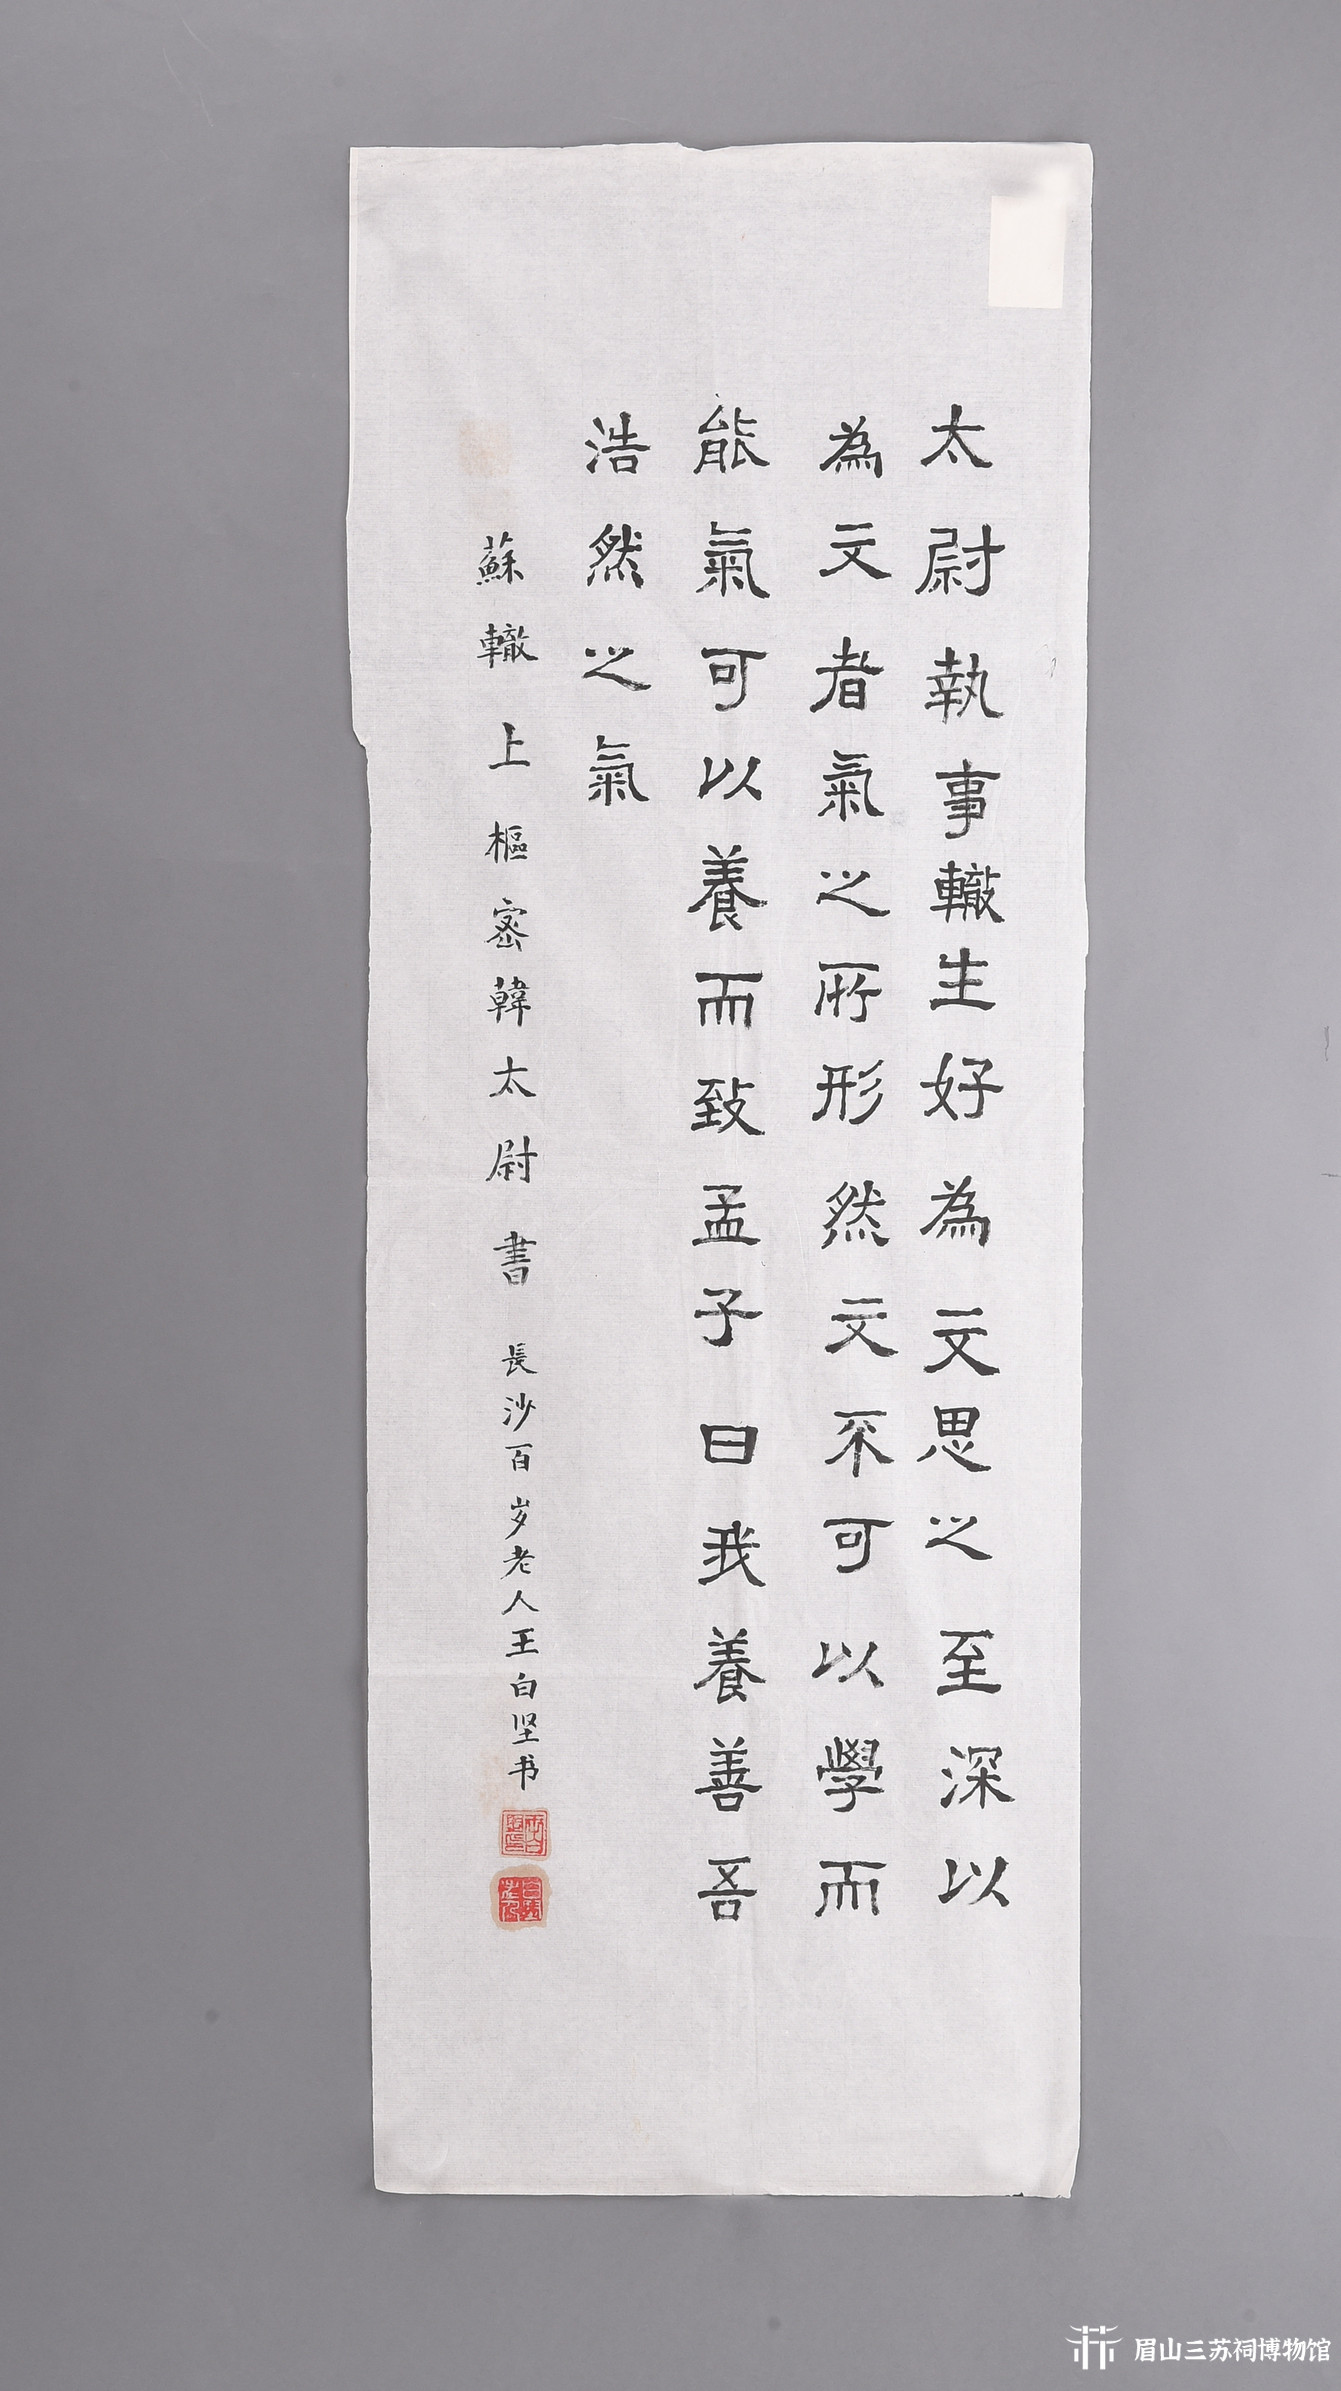 太尉執事轍生好為文思之至深以
為文者氣之所形然文不可以學而
能氣可以養而致孟子曰我養善吾
浩然之氣
蘇轍上樞密韓太尉書 長沙百岁老人王白坚书
眉山三苏祠博物馆